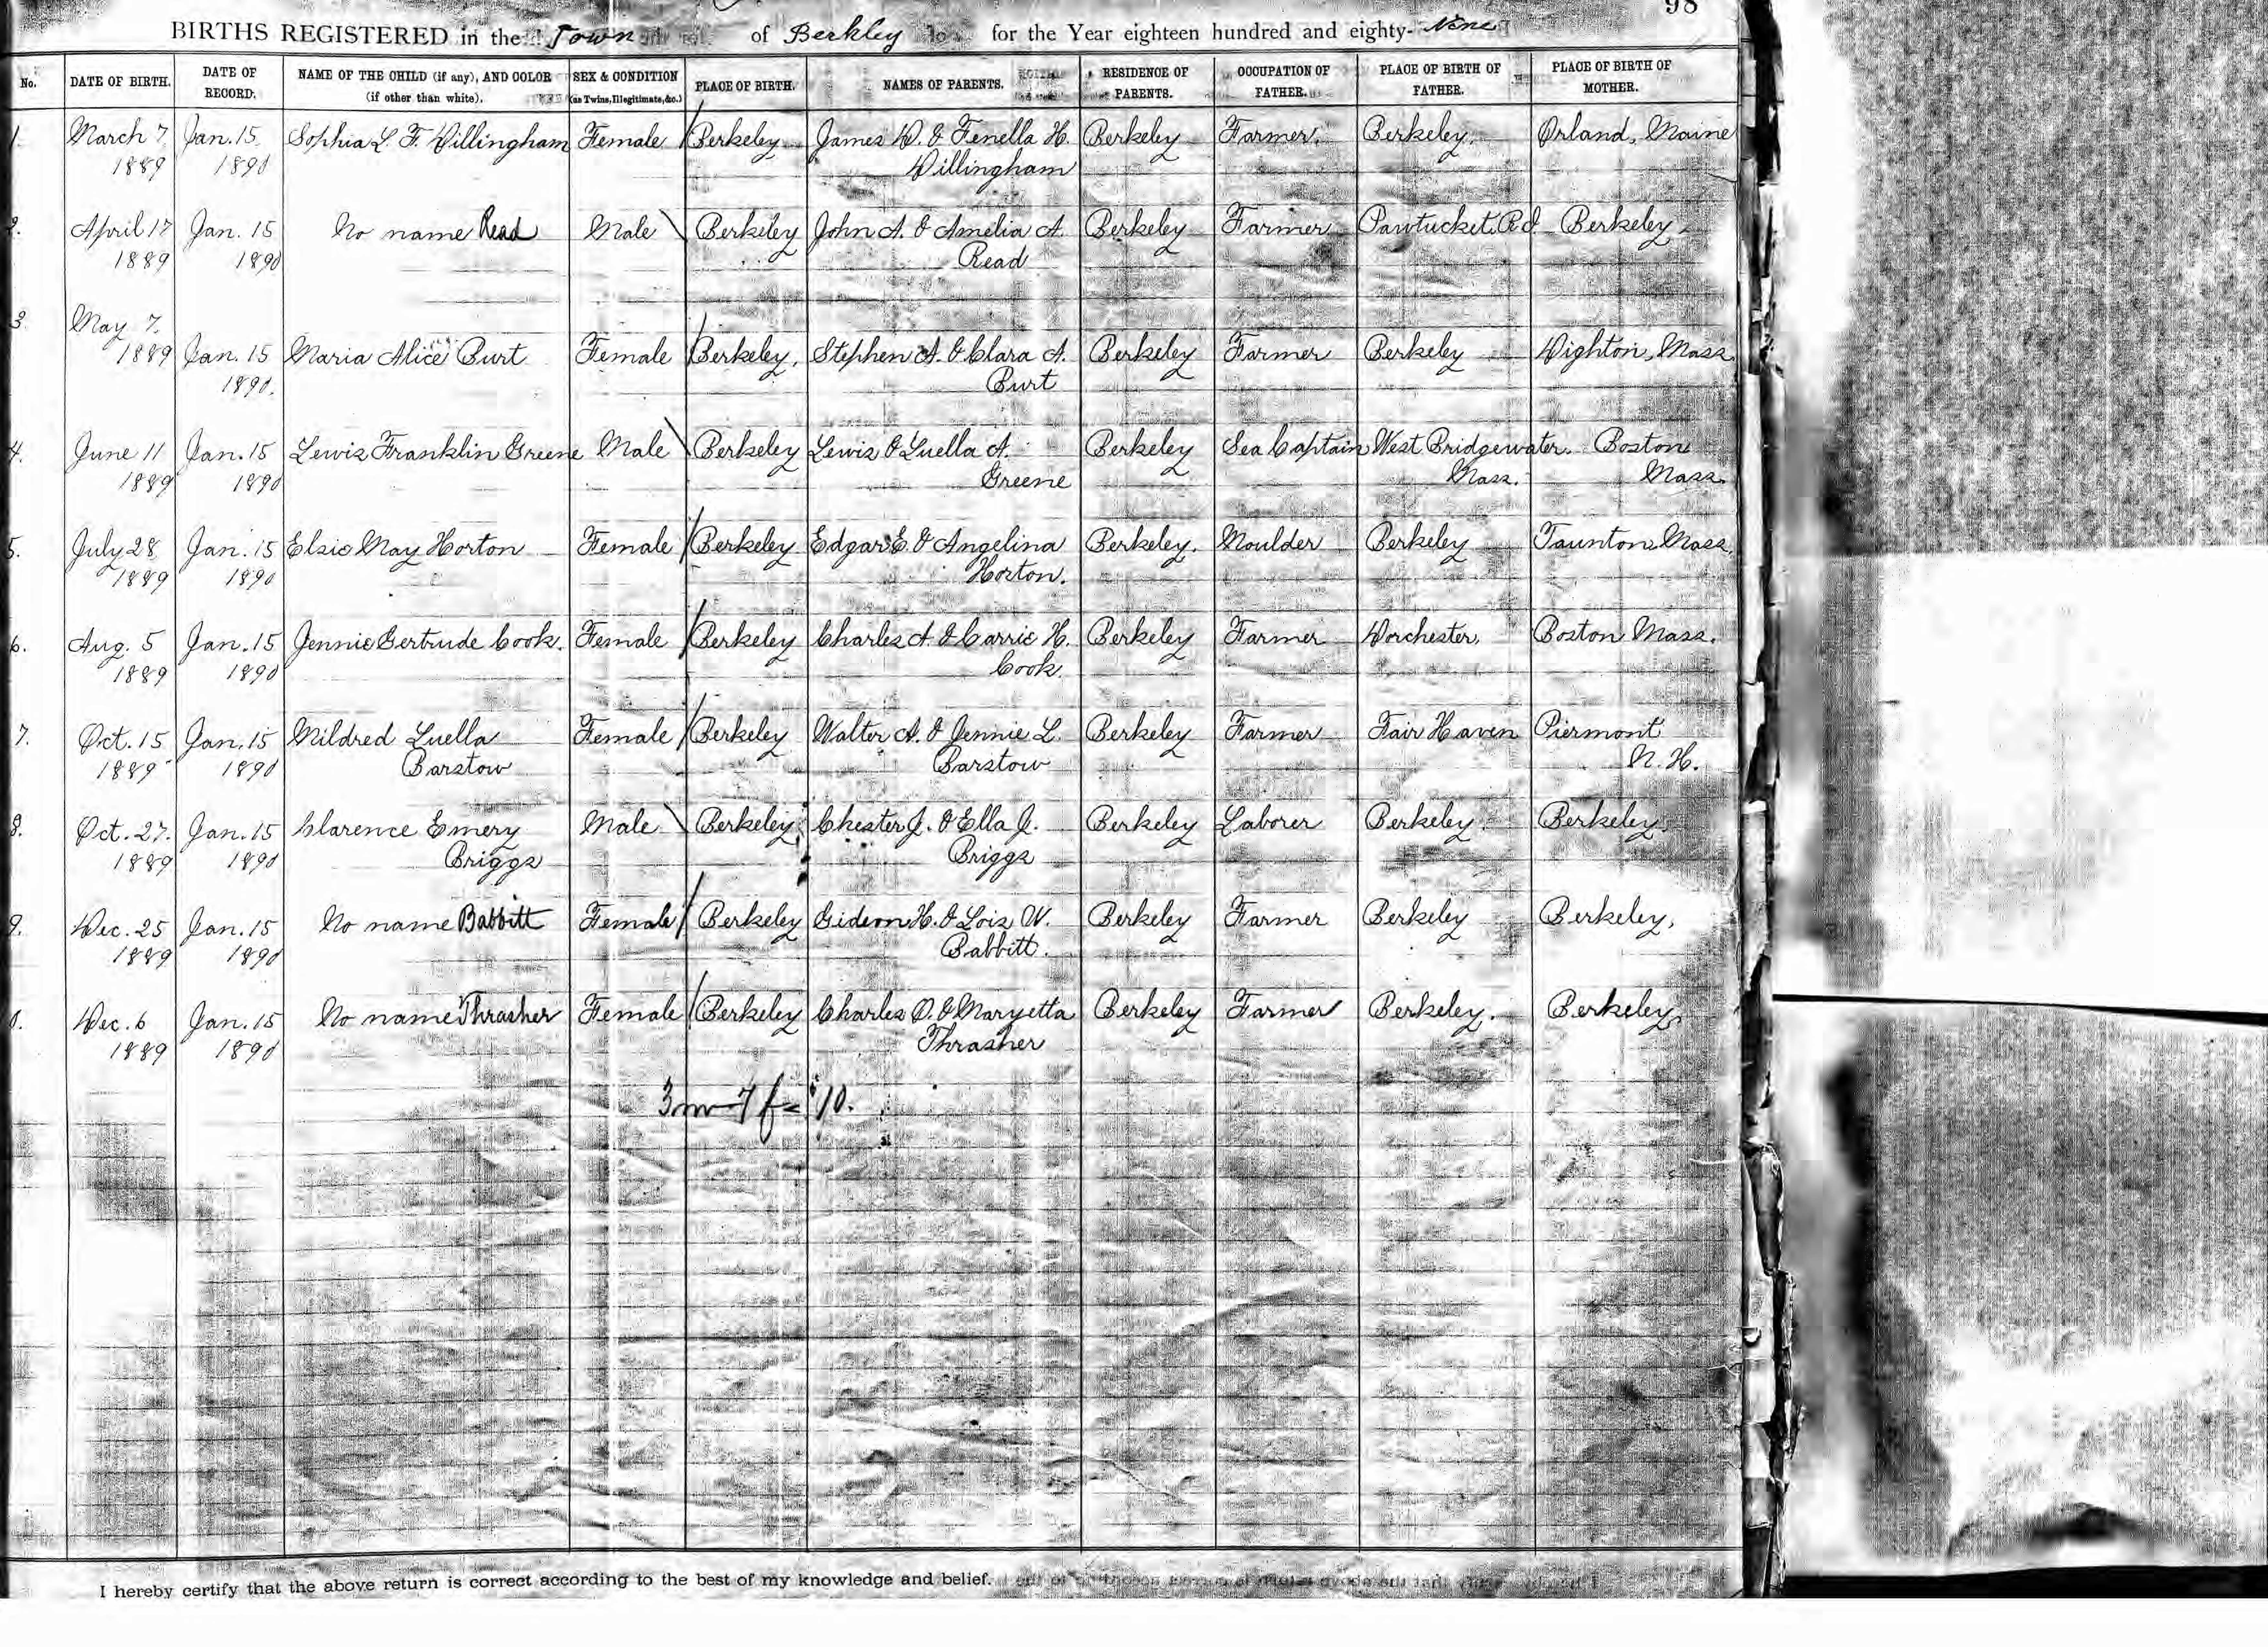 98
BIRTHS REGISTERED in the Town of Berkley for the Year eighteen hundred and eighty-Nine
No. DATE OF BIRTH. DATE OF RECORD. NAME OF THE CHILD (if any), AND COLOR (if other than white). SEX & CONDITION (as Twins, Illegitimate, &c.) PLACE OF BIRTH. NAMES OF PARENTS. RESIDENCE OF PARENTS. OCCUPATION OF FATHER. PLACE OF BIRTH OF FATHER. PLACE OF BIRTH OF MOTHER.
1. March 7 Jan. 15 Sophia L. F. Dillingham Female Berkeley James D. & Fenella H. Berkeley Farmer. Berkeley. Orland, Maine
1889 1890 Dillingham
2. April 17 Jan. 15 No name Read Male Berkeley John A. & Amelia A. Berkeley Farmer Pawtucket, R.I. Berkeley
1889 1890 Read
3. May 7.
1889 Jan. 15 Maria Alice Burt Female Berkeley. Stephen A. & Clara A. Berkeley Farmer Berkeley Dighton, Mass.
1890. Burt
4. June 11 Jan. 15 Lewis Franklin Greene Male Berkeley Lewis & Luella A. Berkeley Sea Captain West Bridgewater. Boston
1889 1890 Greene Mass. Mass.
5. July 28 Jan. 15 Elsie May Horton Female Berkeley Edgar E. & Angelina Berkeley. Moulder Berkeley Taunton, Mass.
1889 1890 Horton.
6. Aug. 5 Jan. 15 Jennie Gertrude Cook. Female Berkeley Charles A. & Carrie H. Berkeley Farmer Dorchester. Boston Mass.
1889 1890 Cook.
7. Oct. 15 Jan. 15 Mildred Luella Female Berkeley Walter A. & Jennie L. Berkeley Farmer Fair Haven Piermont
1889 1890 Barstow Barstow N. H.
8. Oct. 27. Jan. 15 Clarence Emery Male Berkeley Chester J. & Ella J. Berkeley Laborer Berkeley. Berkeley.
1889 1890 Briggs Briggs
9. Dec. 25 Jan. 15 No name Babbitt Female Berkeley Gideon H. & Lois W. Berkeley Farmer Berkeley Berkeley.
1889 1890 Babbitt.
0. Dec. 6 Jan. 15 No name Thrasher Female Berkeley Charles O. & Maryetta Berkeley Farmer Berkeley. Berkeley.
1889 1890 Thrasher
3 m 7 f = 10.
I hereby certify that the above return is correct according to the best of my knowledge and belief.